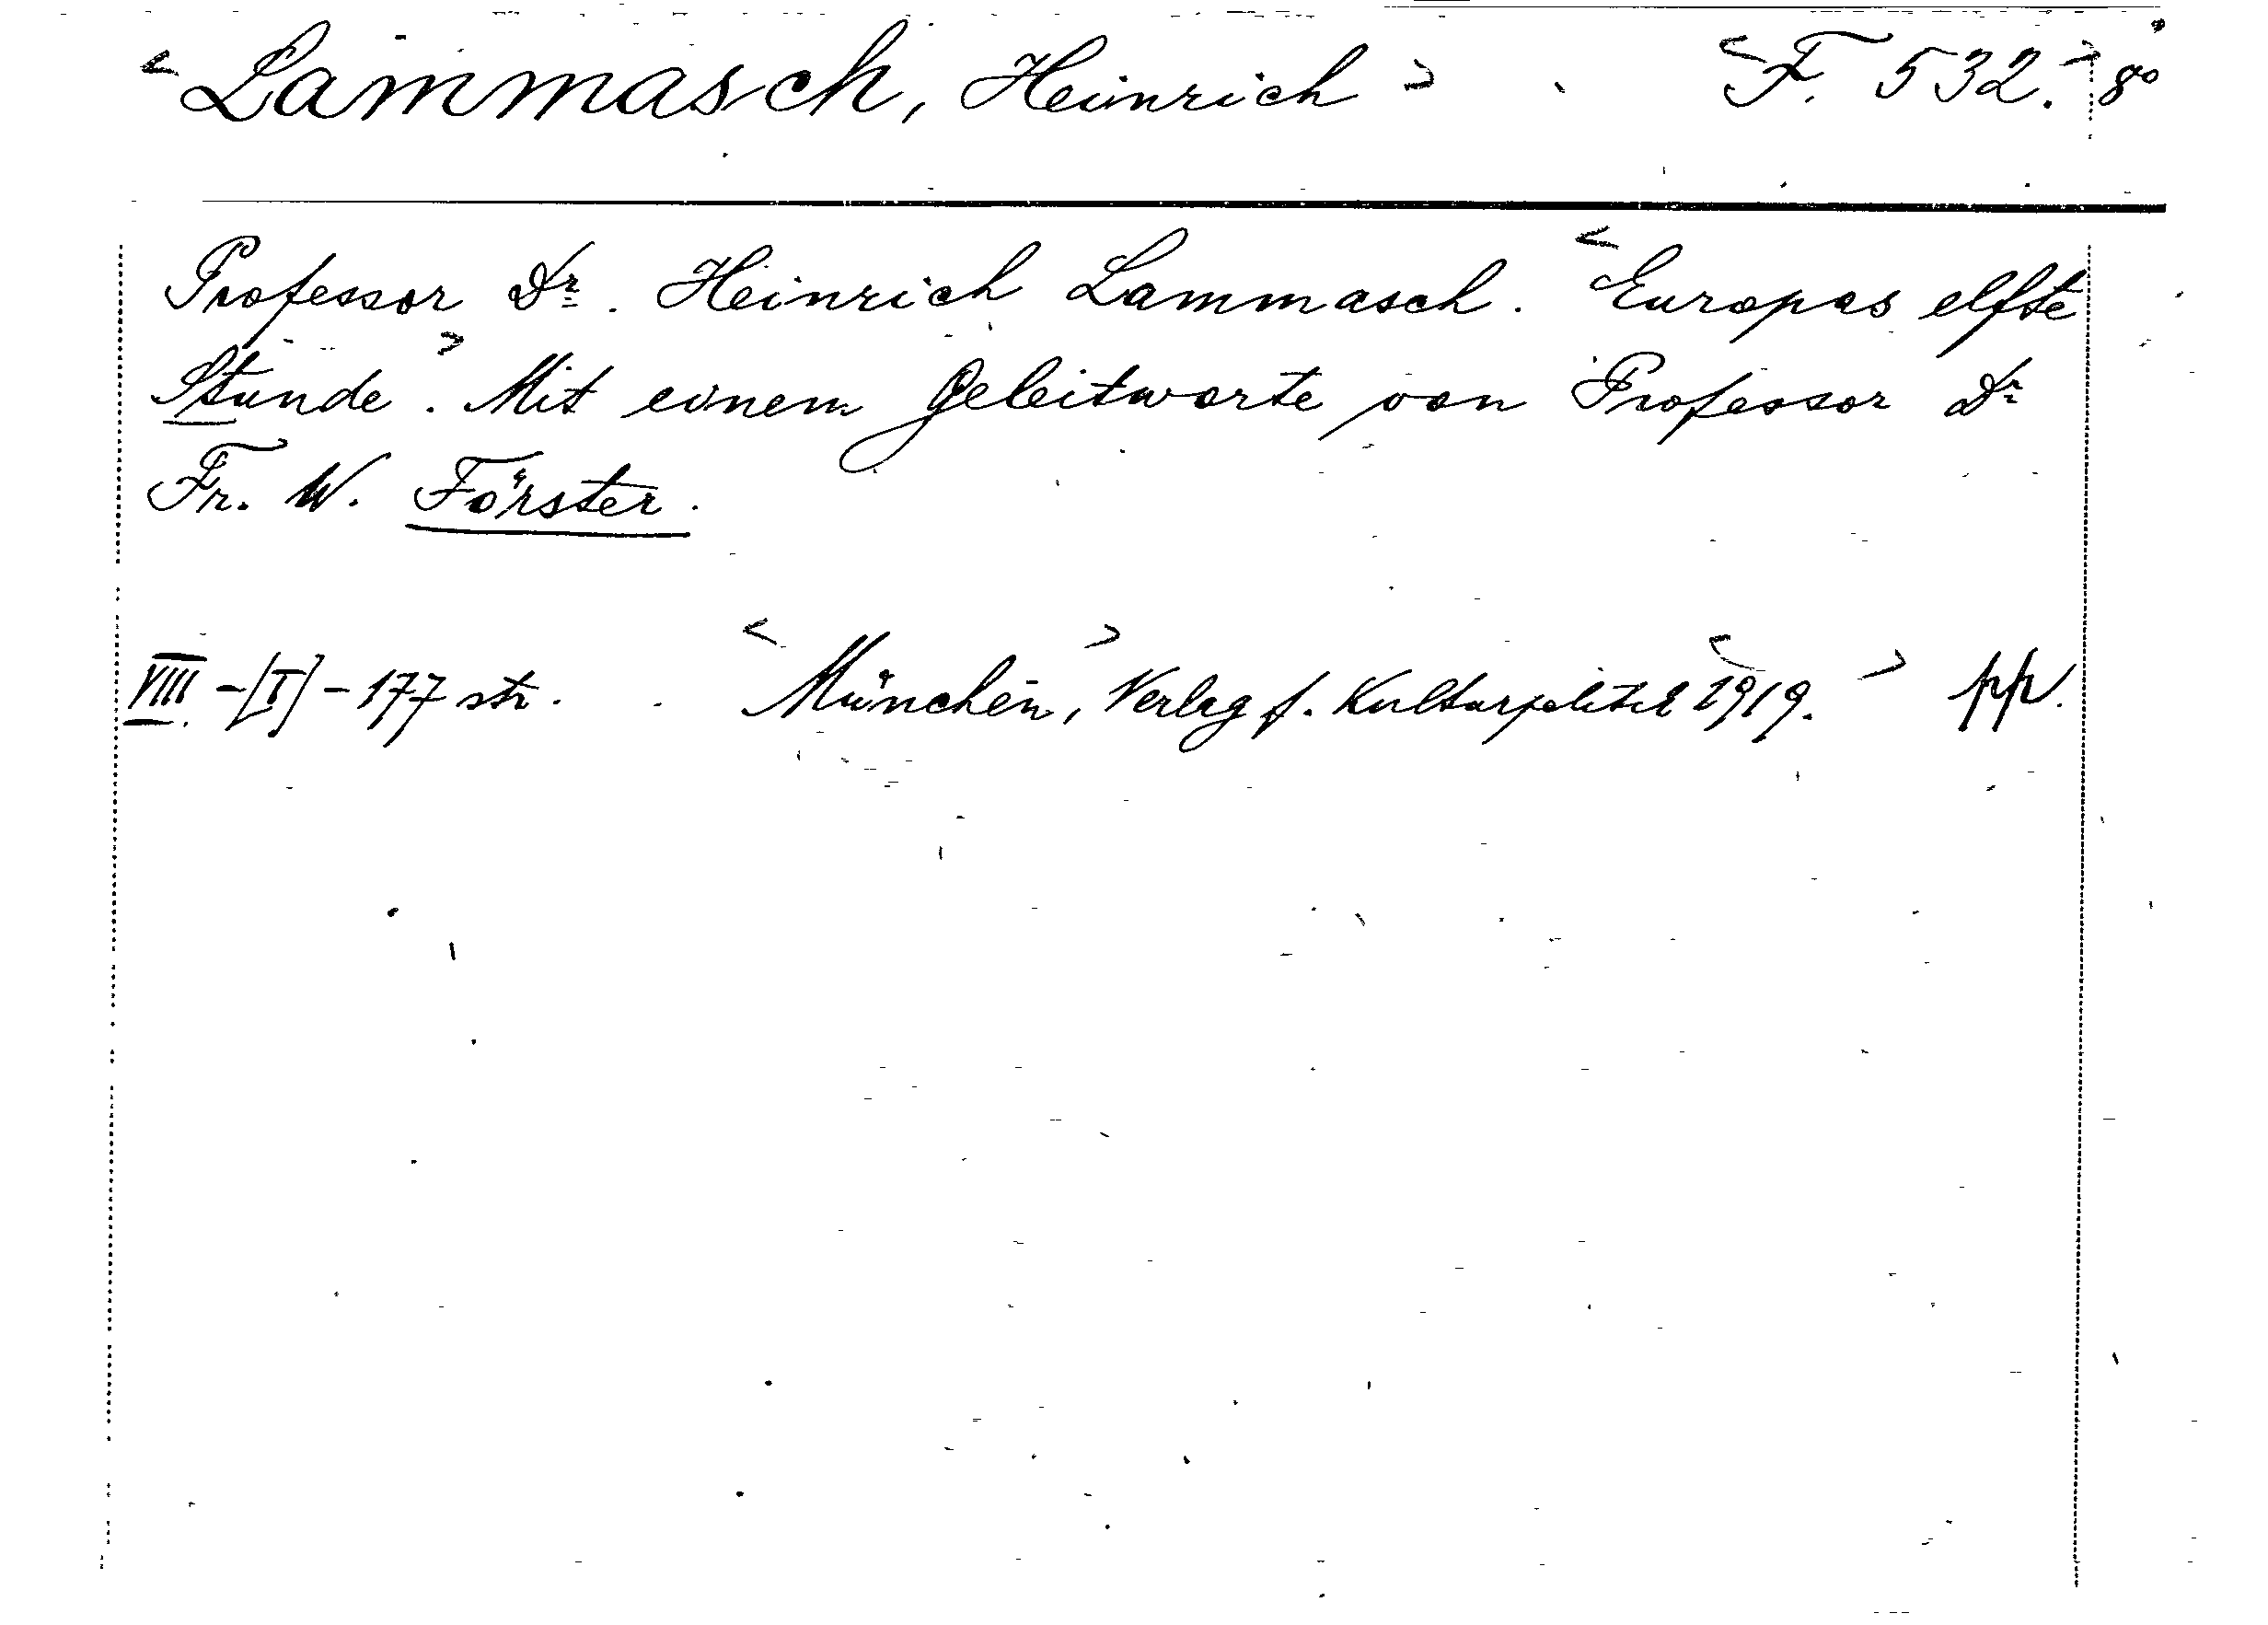 < Lammasch, Heinrich > < F. 532. > 8°
Professor Dr. Heinrich Lammasch. < Europas elfte
Stunde >. Mit einem Geleitworte von Professor Dr
Fr. W. Förster.
VIII - [I] - 177 str. < München, > Verlag f. Kulturpolitik < 1919. > pp.